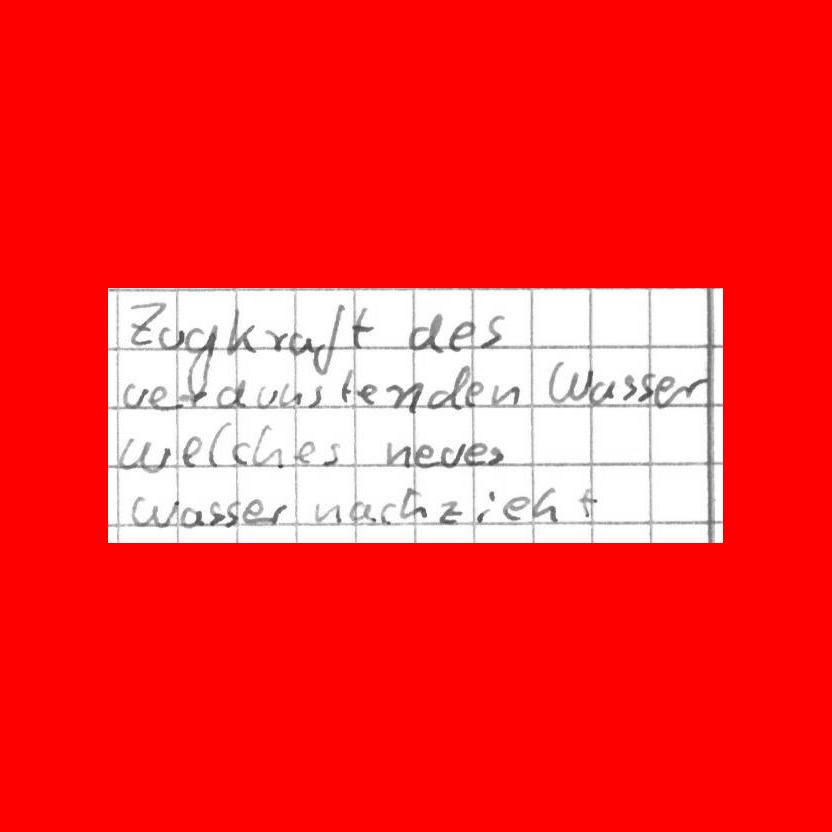 Zugkraft des
verdunstenden Wasser
welches neues
wasser nachzieht